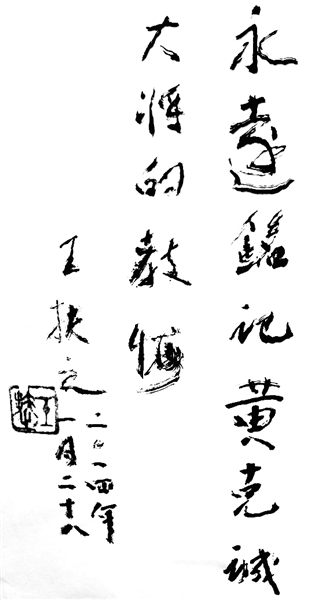 永遠铭记黄克诚
大将的教诲
王扶之
二〇一四年
一月二十八